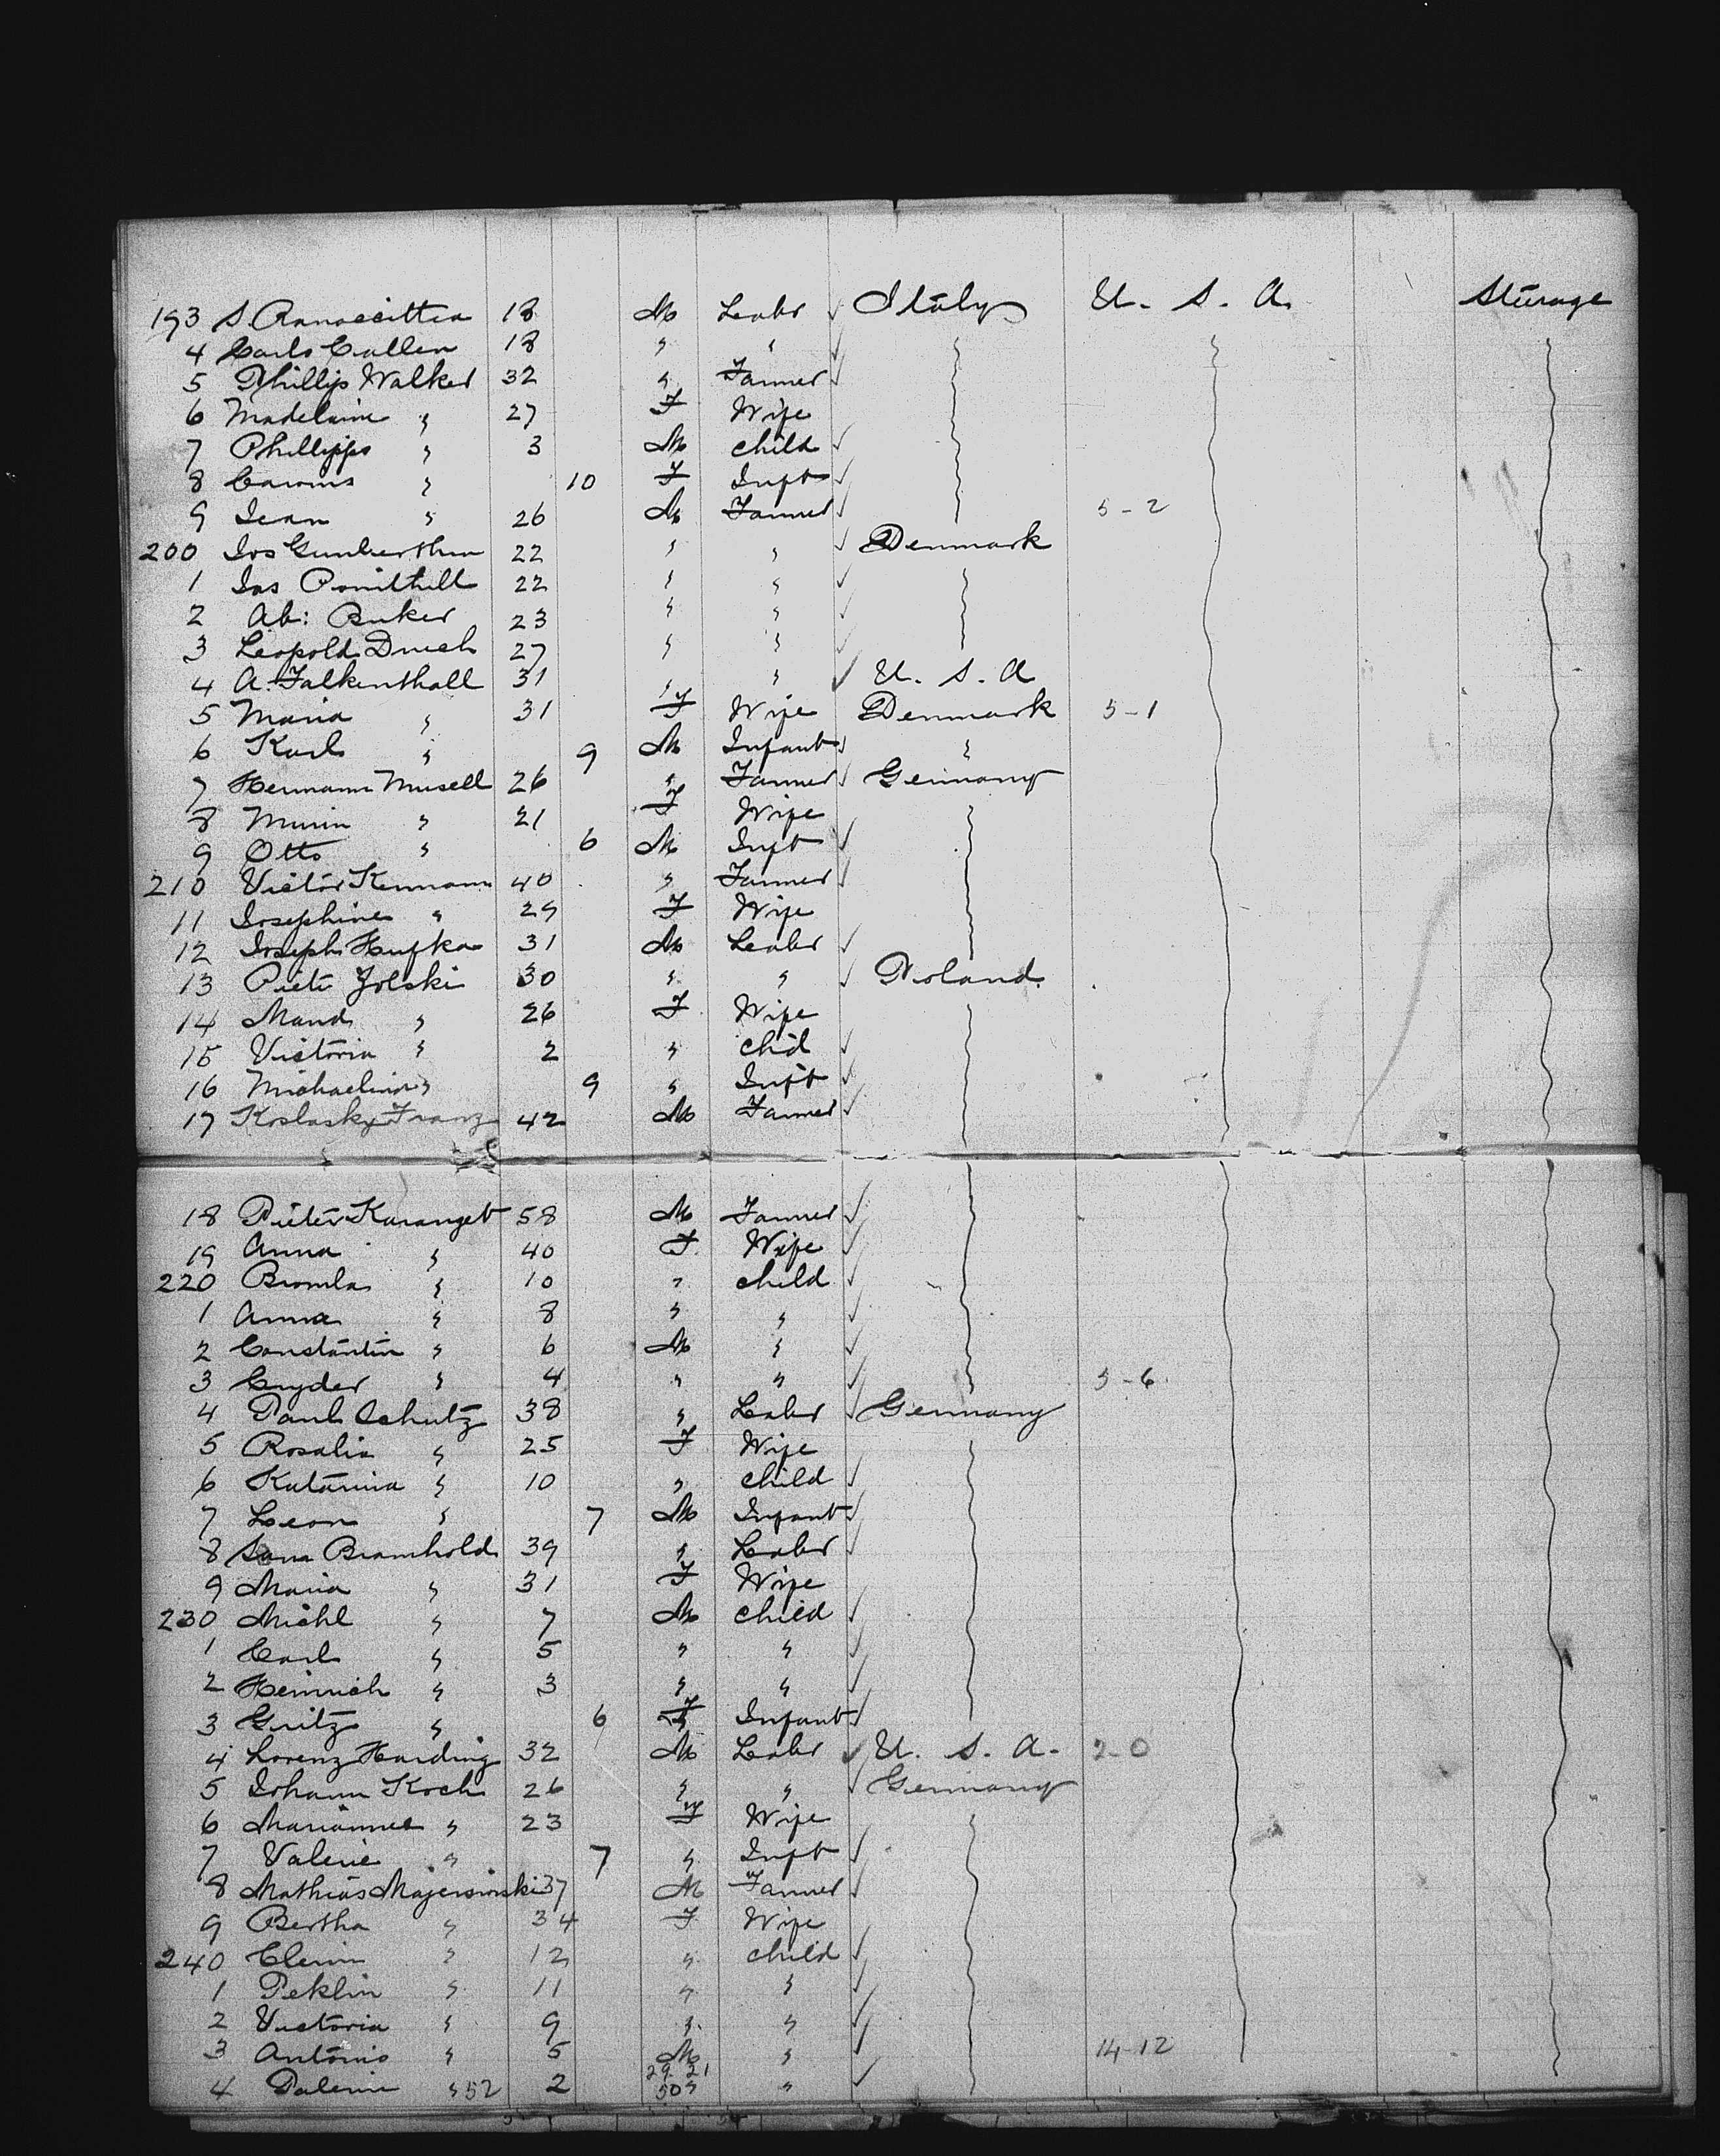 193 S. Ranaccittea 18 M Labr ✓ Italy U. S. A. Steerage
4 Carlo Callen 18 " " ✓
5 Phillip Walker 32 " Farmer ✓
6 Madelaine " 27 F Wife
7 Phillipps " 3 M child ✓
8 " 10 F Inft ✓
9 Jean " 26 M Farmer ✓ 5-2
200 Jos 22 " " ✓ Denmark
1 Jas 22 " " ✓
2 Ab: Buker 23 " " ✓
3 Leopold 27 " " ✓
4 A. Falkenthall 31 " " ✓ U. S. A
5 Maria " 31 F Wife Denmark 5-1
6 Karl " 9 M Infant ✓ "
7 Hermann Musell 26 " Farmer ✓ Germany
8 Minin " 21 F Wife
9 Otto " 6 M Inft ✓
210 Victor Kenmann 40 " Farmer ✓
11 Josephine " 29 F Wife
12 Joseph Hufka 31 M Labr ✓
13 Piete Jolski 30 " " ✓ Poland
14 Mand " 26 F Wife
15 Victoria " 2 " chid ✓
16 Michaelina " 9 " Inft ✓
17 Koslasky Franz 42 M Farmer ✓
18 Pieter Karanget 58 M Farmer ✓
19 Anna " 40 F Wife ✓
220 Bromla " 10 " child ✓
1 Anna " 8 " " ✓
2 Constantin " 6 M " ✓
3 " 4 " " ✓ 5-6
4 Paul Schutz 38 " Labr ✓ Germany
5 Rosalia " 25 F Wife
6 Katarina " 10 " child ✓
7 Leon " 7 M Infant ✓
8 Bramhold 39 " Labr ✓
9 Maria " 31 F Wife
230 Michl " 7 M child ✓
1 Carl " 5 " " ✓
2 Heinrich " 3 " " ✓
3 Gritz " 6 F Infant ✓
4 Lorenz Harding 32 M Labr ✓ U. S. A. 2-0
5 Johann Koch 26 " " ✓ Germany
6 Marianna " 23 F Wife
7 Valerie " 7 " Inft ✓
8 Mathias Majerowski 37 M Farmer ✓
9 Bertha " 34 F Wife
240 " 12 " child ✓
1 Peklin " 11 " " ✓
2 Victoria " 9 " " ✓
3 Antonio " 5 M " ✓ 14-12
29 21
4 " 52 2 50 " " ✓